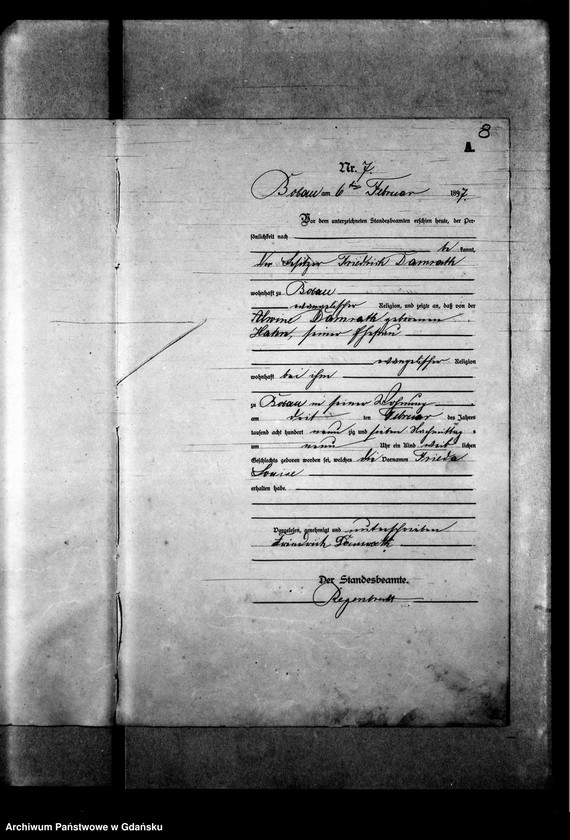 8
A.
Nr. 7.
Bobau am 6ten Februar 1897.
Vor dem unterzeichneten Standesbeamten erschien heute, der Per-
sönlichkeit nach
be kannt,
der Besitzer Friedrich Damrath
wohnhaft zu Bobau
evangelischer Religion, und zeigte an, daß von der
Alwine Damrath geborenen
Hahn, seiner Ehefrau
evangelischer Religion
wohnhaft bei ihm
zu Bobau in seiner Wohnung
am ten Februar des Jahres
tausend acht hundert neunzig und sieben Nachmittag s
um neun Uhr ein Kind weib lichen
Geschlechts geboren worden sei, welches die Vornamen Frieda
Louise
erhalten habe.
Vorgelesen, genehmigt und unterschrieben
Friedrich Damrath
Der Standesbeamte.
Regenbrecht
Archiwum Państwowe w Gdańsku